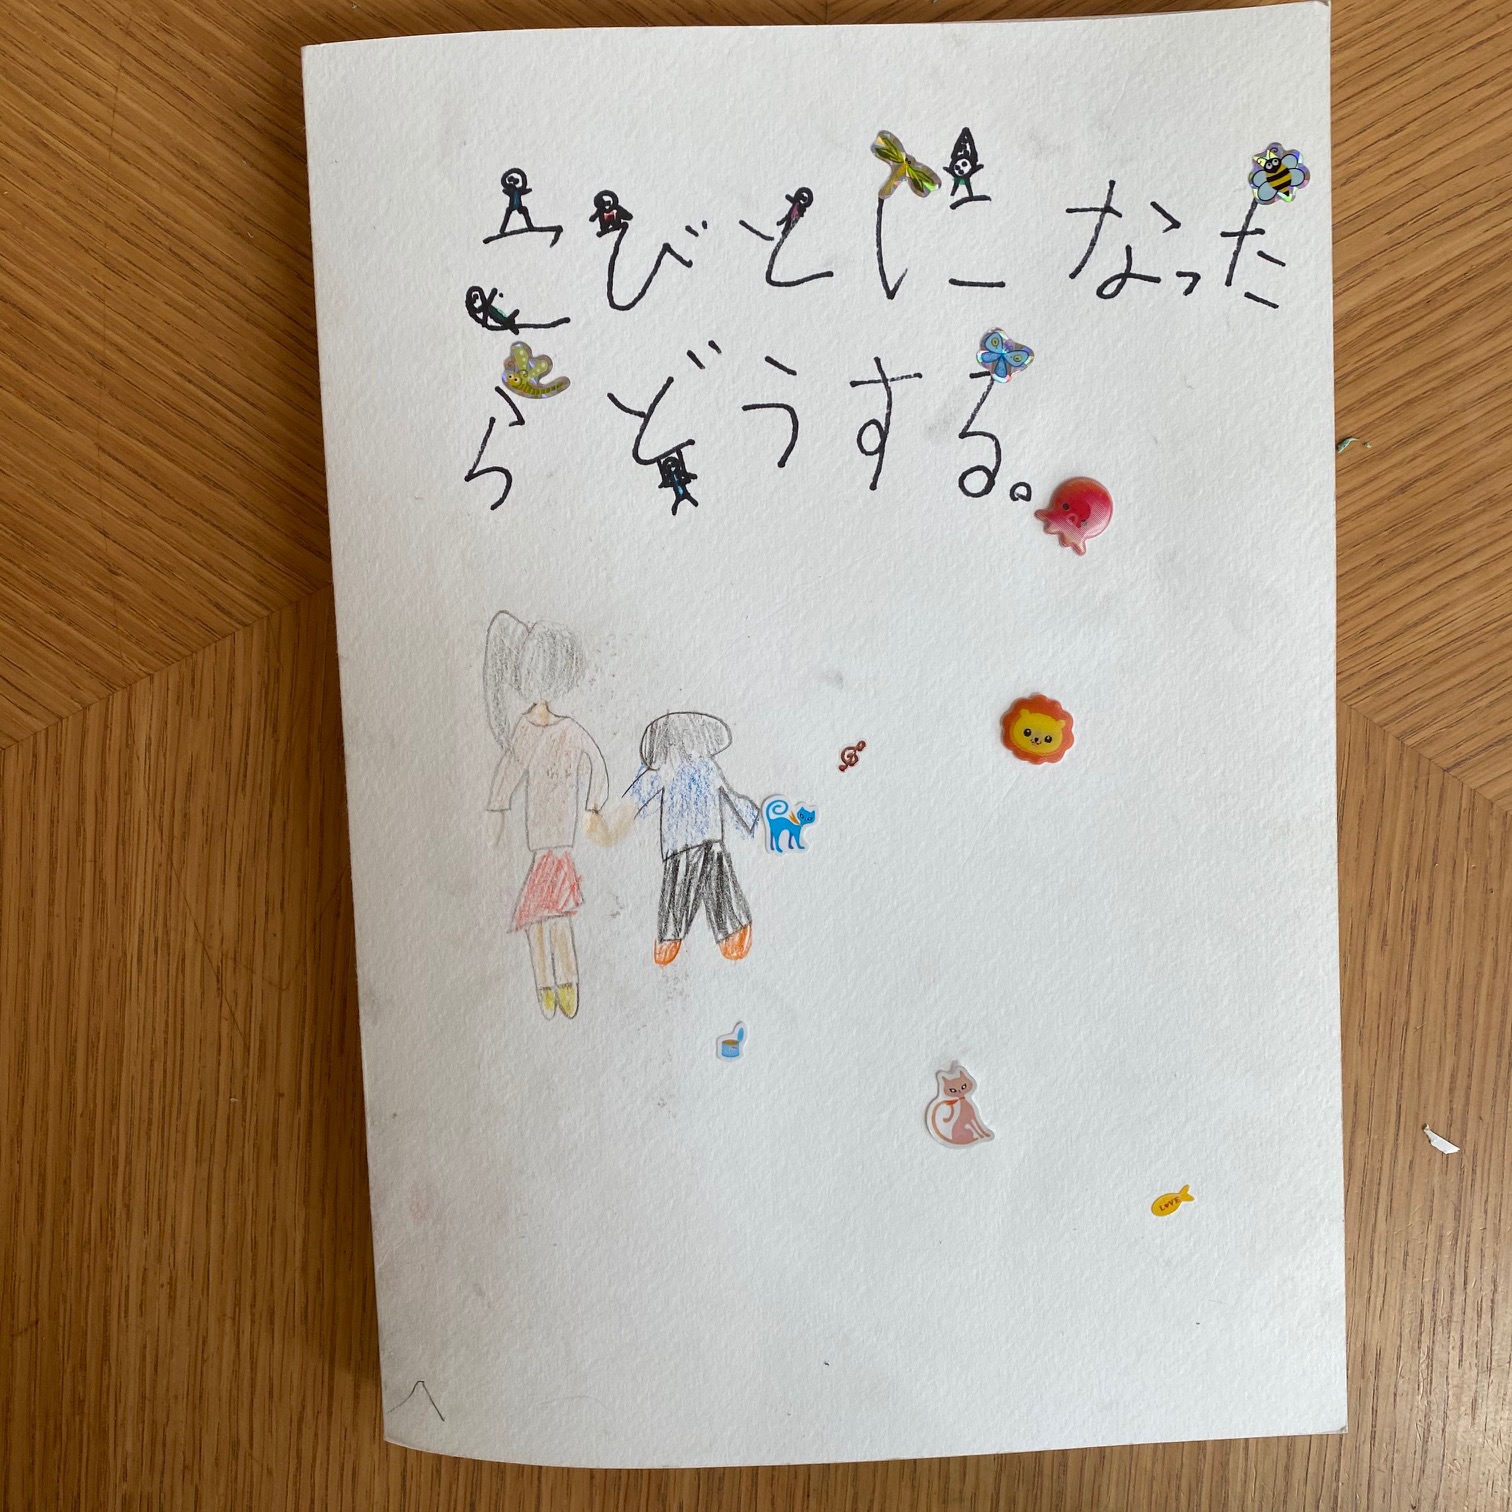 こびとになった
らどうする。
LOVE